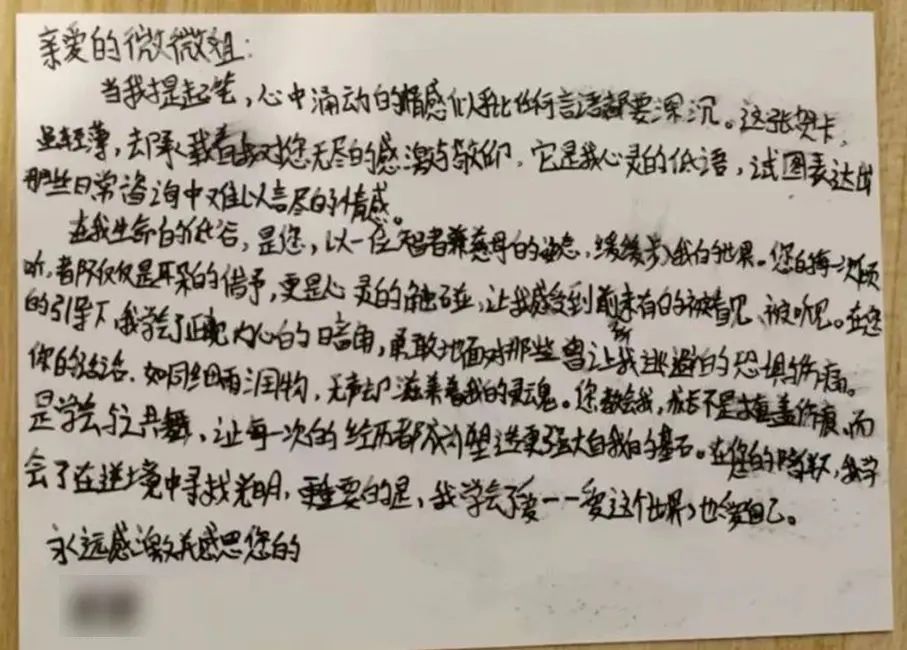 亲爱的微微姐:
当我提起笔,心中涌动的情感似乎比任何言语都要深沉。这张贺卡,
虽轻薄,却承载着我对您无尽的感激与敬仰,它是我心灵的低语,试图表达出
那些日常咨询中难以言尽的情感。
在我生命的低谷,是您,以一位智者兼慈母的姿态,缓缓步入我的世界。您的每一次倾
听,都不仅仅是耳朵的借予,更是心灵的触碰,让我感受到前所未有的被看见、被听见。在您
的引导下,我学会了正视内心的暗角,勇敢地面对那些曾让我逃避的恐惧与伤痛。
你的话语,如同细雨润物,无声却滋养着我的灵魂。您教会我,成长不是掩盖伤痕,而
是学会与之共舞,让每一次的经历都成为塑造更强大自我的基石。在您的陪伴下,我学
会了在逆境中寻找光明,更重要的是,我学会了爱——爱这个世界,也爱自己。
永远感激并感恩您的